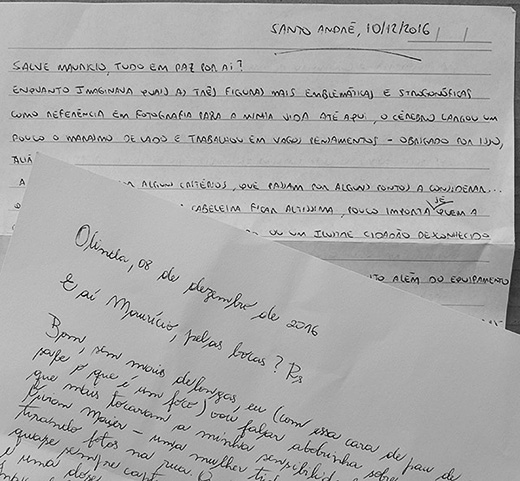 SANTO ANDRÉ, 10/12/2016
SALVE MAURICIO, TUDO EM PAZ POR AÍ?
ENQUANTO IMAGINAVA QUAIS AS TRÊS FIGURAS MAIS EMBLEMÁTICAS E
COMO REFERÊNCIA EM FOTOGRAFIA PARA A MINHA VIDA ATÉ AQUI, O CÉREBRO LARGOU UM
POUCO O MARASMO DE LADO E TRABALHOU EM VAGOS PENSAMENTOS - OBRIGADO POR ISSO,
ALIÁ
A POR ALGUNS CRITÉRIOS, QUE PASSAM POR ALGUNS PONTOS A CONSIDERAR...
A CABELEIRA FICAR ALTISSIMA, POUCO IMPORTA SE QUEM A
OU UM ILUSTRE CIDADÃO DESCONHECIDO
ITO ALÉM DO EQUIPAMENTO
Olinda, 08 de dezembro de 2016
E aí Maurício, pelas bocas? Rs
Bom, sem mais delongas, eu (com essa cara de pau de
sape é que é um foto) vou falar abobrinha sobre
que mais tocaram a minha sensibilid
Vivian Mayer - uma mulher ti
tirando fotos na rua. O
quase sempre capt
é uma dose